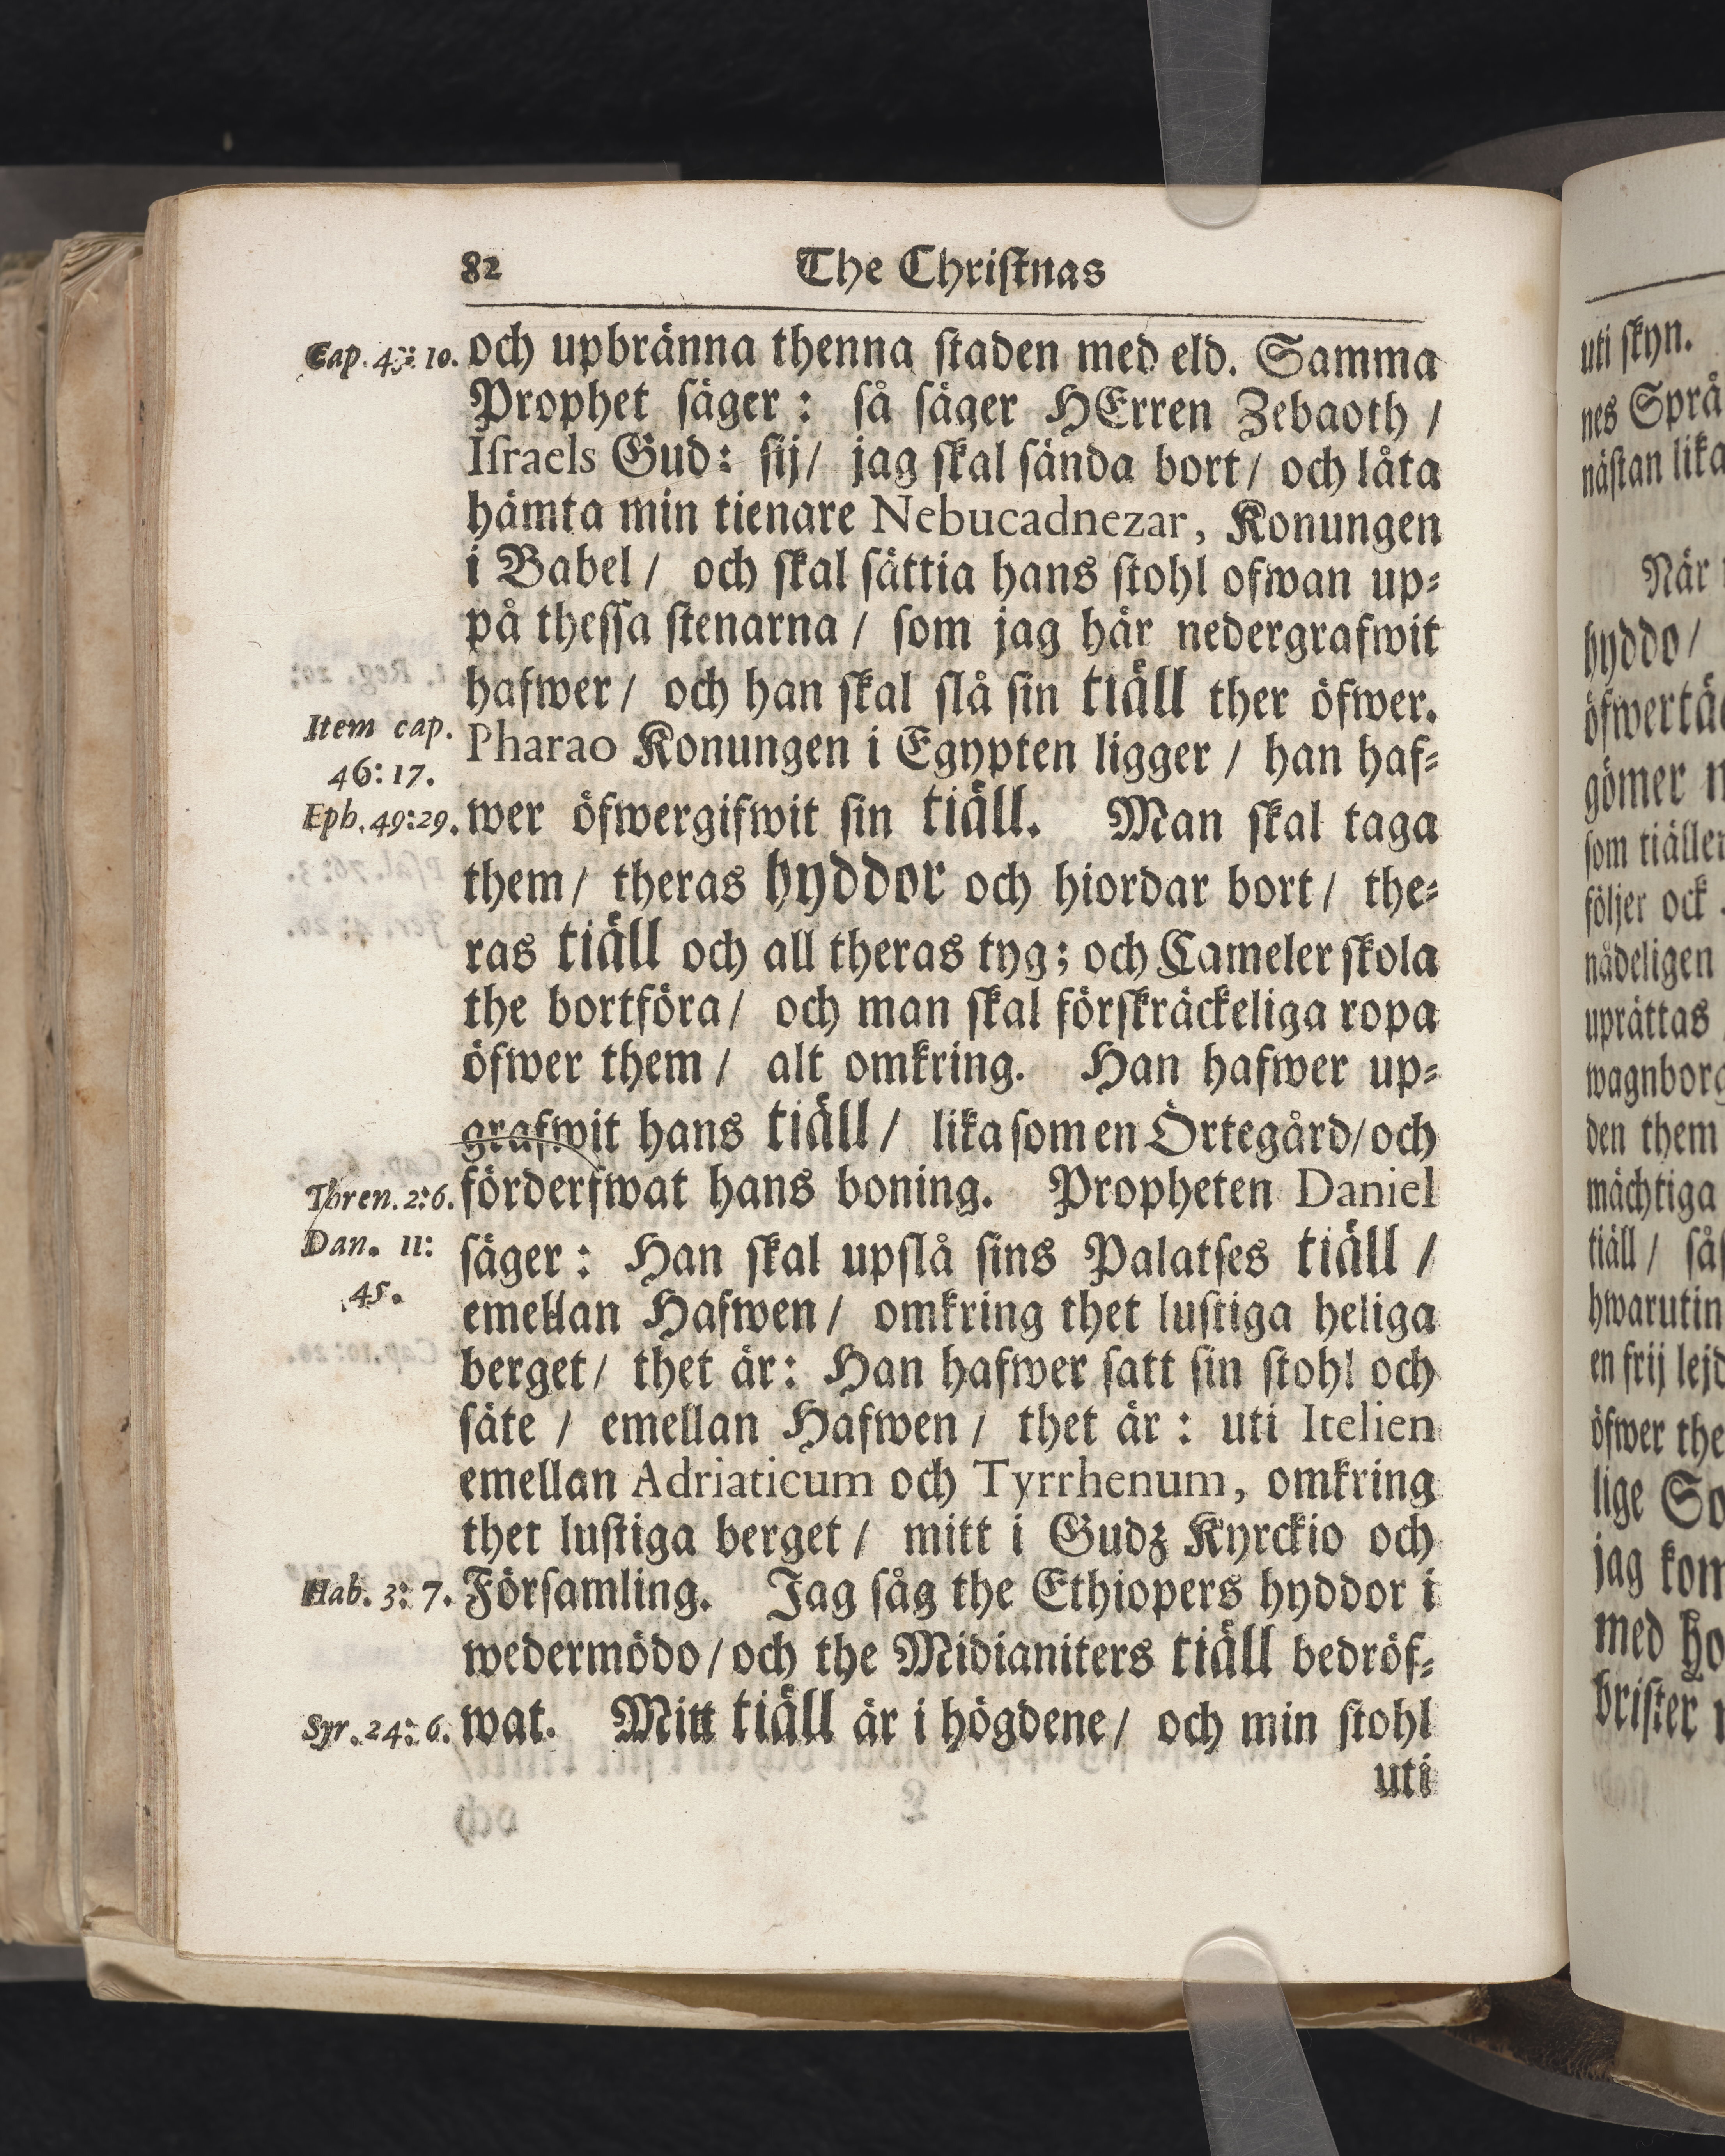 82 The Chriſtnas
Cap. 43: 10. och upbränna thenna ſtaden med eld. Samma
Prophet ſäger: ſå ſäger HErren Zebaoth /
Iſraels Gud: ſij/ jag ſkal ſända bort/ och låta
hämta min tienare Nebucadnezar, Konungen
i Babel/ och ſkal ſättia hans ſtohl ofwan up⸗
på theſſa ſtenarna/ ſom jag här nedergrafwit
hafwer/ och han ſkal ſlå ſin tiäll ther öfwer.
Item cap. Pharao Konungen i Egypten ligger/ han haf⸗
46: 17.
Eph. 49:29. wer öfwergifwit ſin tiäll. Man ſkal taga
them/ theras hyddor och hiordar bort/ the⸗
ras tiäll och all theras tyg; och Cameler ſkola
the bortföra/ och man ſkal förſkräckeliga ropa
öfwer them/ alt omkring. Han hafwer up⸗
grafwit hans tiäll/ lika ſom en Örtegård/och
Thren. 2:6. förderfwat hans boning. Propheten Daniel
Dan. 11: ſäger: Han ſkal upſlå ſins Palatſes tiäll /
45.
emellan Hafwen/ omkring thet luſtiga heliga
berget/ thet är: Han hafwer ſatt ſin ſtohl och
ſäte / emellan Hafwen/ thet är: uti Itelien
emellan Adriaticum och Tyrrhenum, omkring
thet luſtiga berget/ mitt i Gudz Kyrckio och
Hab. 3: 7. Förſamling. Jag ſåg the Ethiopers hyddor i
wedermödo/och the Midianiters tiäll bedröf⸗
Syr. 24: 6. wat. Mitt tiäll är i högdene/ och min ſtohl
uti
uti ſkyn.
nes
näſtan lika
När
hyddo/
gömer
följer ock
nådeligen
uprättas
den them
mächtiga
tiäll/
öfwer the
lige
jag
med